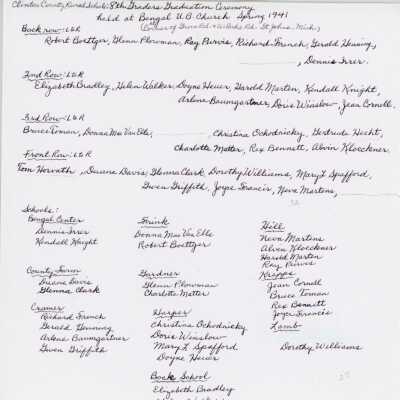 Clinton County Rural Schools 8th Graders Graduation Ceremony
held at Bengal U.B. Church Spring 1941
(Corner of & Rd. St. Johns, Mich.)
Back row: L&R
Robert Boettger, Glenn Plowman, Ray Purvis, Richard French, Gerald Henning,
, Dennis Irrer.
2nd Row: L&R
Elizabeth Bradley, Helen Walker, Doyne Heuer, Harold Marten, Kendall Knight,
Arlene Baumgartner, Doris Winslow, Jean Cornell.
3rd Row: L&R
Bruce Toman, Donna Mae Van Ells, , Christina Ochodnicky, Gertrude Hecht,
Charlotte Matter, Rex Bennett, Alvin Kloeckner.
Front Row: L&R
Tom Horvath, Duane Davis, Glenna Clark, Dorothy Williams, Mary L. Spafford,
Gwen Griffith, Joyce Francis, Neva Martens,
Schools:
Bengal Center
Dennis Irrer
Kendall Knight
County Farm
Duane Davis
Glenna Clark
Cramer
Richard French
Gerald Henning
Arlene Baumgartner
Gwen Griffith
Frink
Donna Mae Van Ells
Robert Boettger
Gardner
Glenn Plowman
Charlotte Matter
Harper
Christina Ochodnicky
Doris Winslow
Mary L. Spafford
Doyne Heuer
Bock School
Elizabeth Bradley
Hill
Neva Martens
Alvin Kloeckner
Harold Marten
Ray Purvis
Krepps
Jean Cornell
Bruce Toman
Rex Bennett
Joyce Francis
Lamb
Dorothy Williams